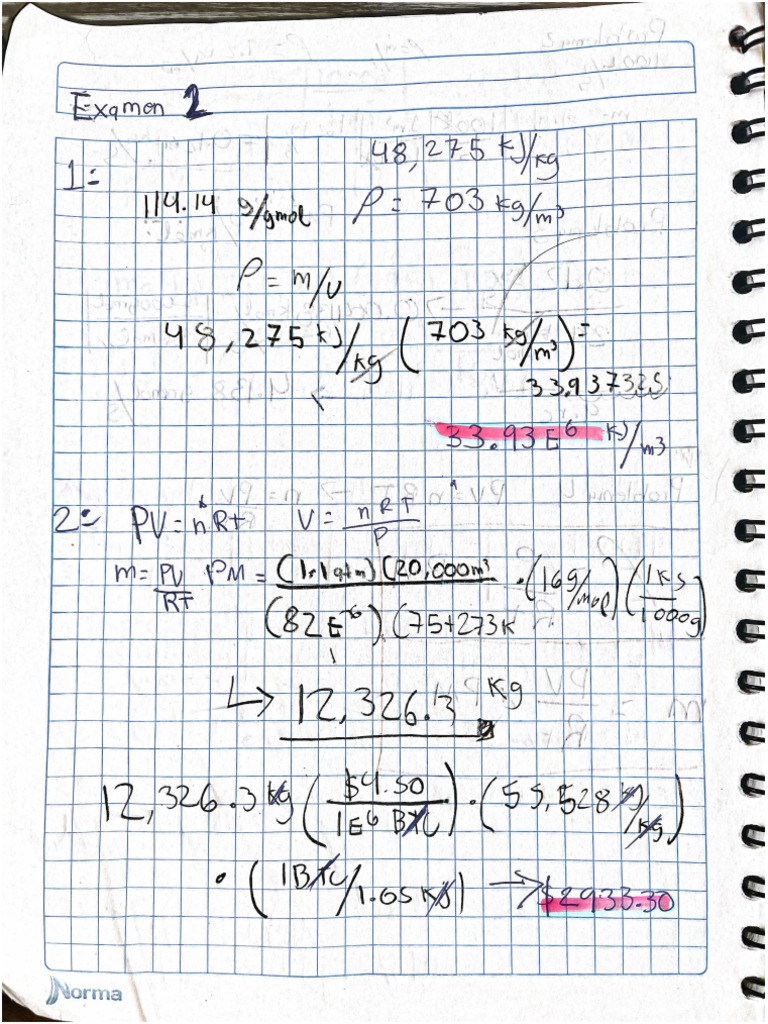 Examen 2
1:
48,275 kJ/kg
114.14 g/gmol ρ = 703 kg/m³
ρ = m/v
48,275 kJ/kg (703 kg/m³) =
33.937325
33.93 E⁶ kJ/m³
2: PV = nRt V = nRt/P
m = PV/Rt PM = (1.1 atm)(20,000 m³)/(82 E⁻⁶)(75+273K · (16 g/mol)(1kg/1000g)
↳ 12,326.3 kg
12,326.3 kg ($4.50/1E⁶ BTU) · (55,528 kJ/kg)
· (1BTU/1.05 kJ) → $2933.30
Norma